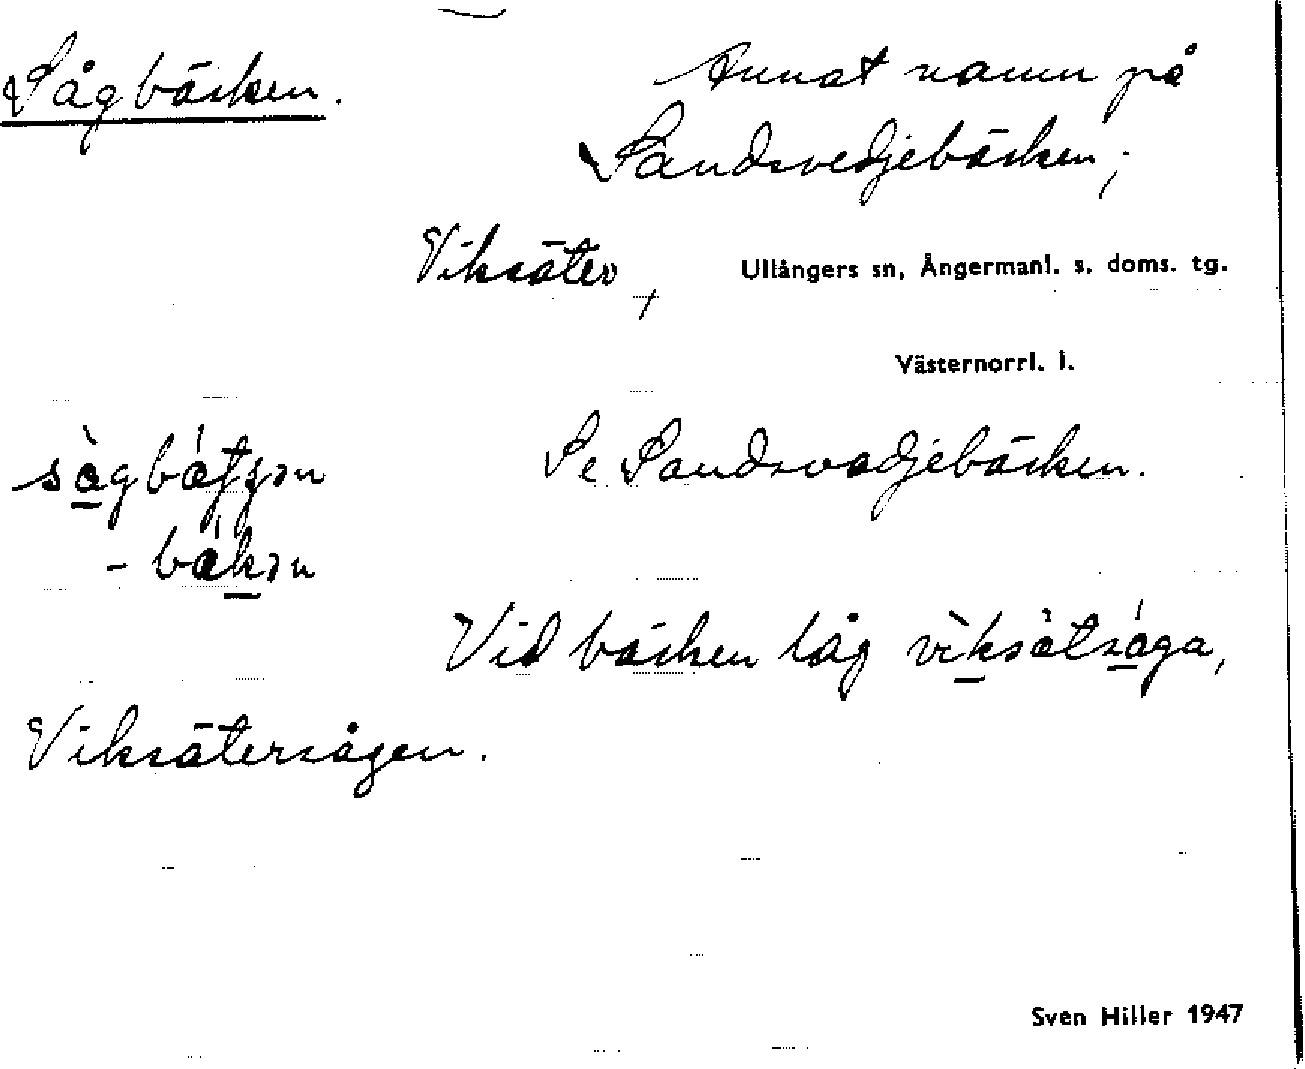 Sågbäcken. Annat namn på
Sandsvedjebäcken;
Viksäter, Ullångers sn, Ångermanl. s. doms. tg.
Västernorrl. l.
Se Sandsvedjebäcken.
Vid bäcken låg
Viksätersågen.
Sven Hiller 1947